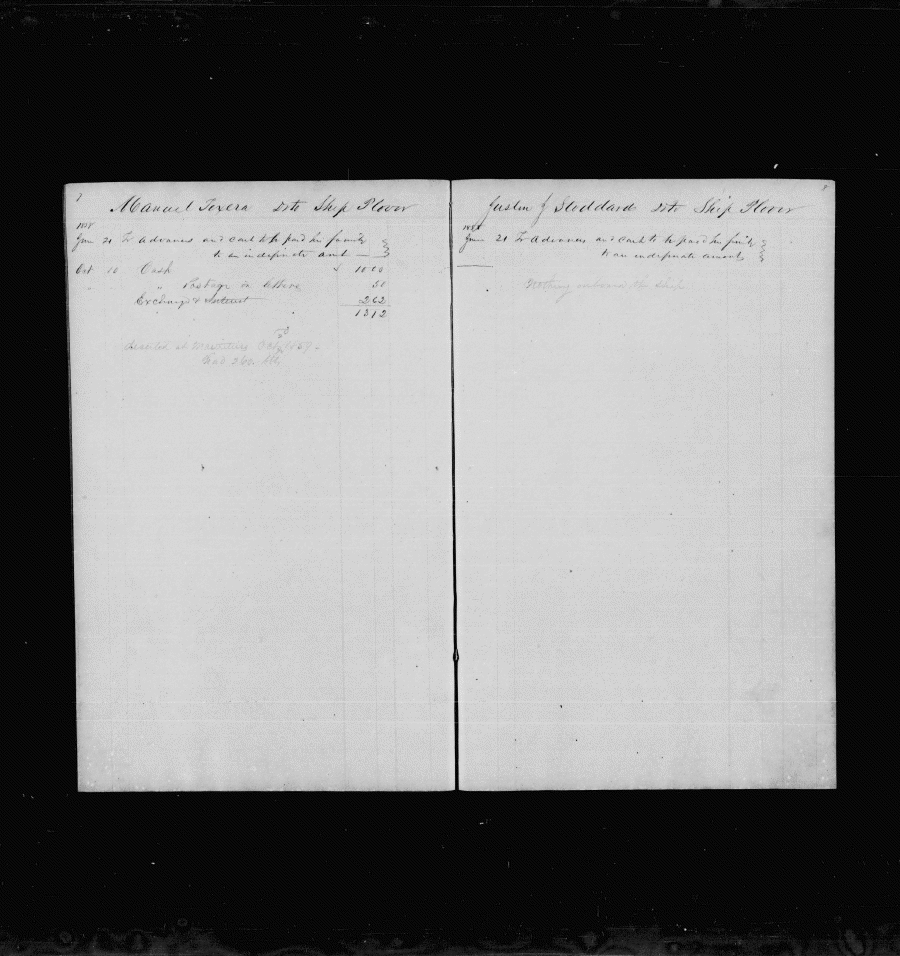 7
Manuel Texera Dr to Ship Plover
1858
Jan 21 To Advances and cash to be paid his family
to an indefinate amt —
Oct 10 Cash $ 10.00
" Postage in Others 50
Exchange & Interest 2.62
13.12
at Oct 1859 -
8
Justin J Stoddard Dr to Ship Plover
1858
Jan 21 To Advances and cash to be paid his family
to an indefinate amount
Nothing the Ship